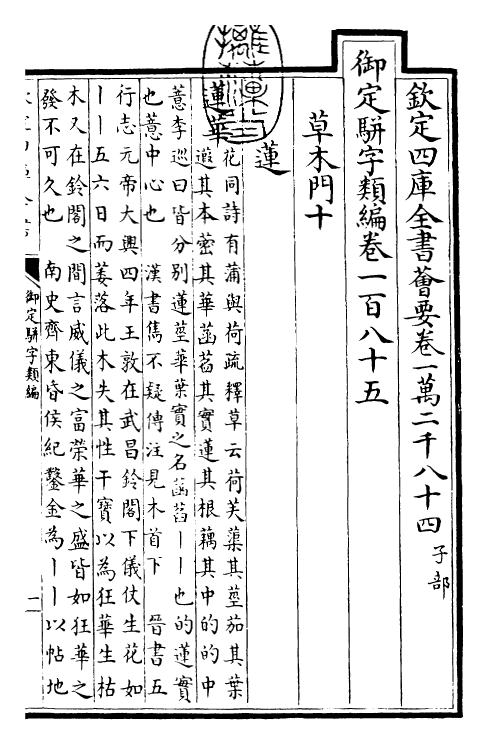 欽定四庫全書薈要卷一萬二千八十四 子部
御定駢字類編卷一百八十五
草木門十
蓮
蓮華 花同詩有蒲與荷疏釋草云荷芙蕖其莖茄其葉
蕸其本蔤其華菡萏其實蓮其根藕其中的的中
薏李巡曰皆分別蓮莖華葉實之名菡萏丨丨也的蓮實
也薏中心也 漢書雋不疑傳注見木首下 晉書五
行志元帝大興四年王敦在武昌鈴閣下儀仗生花如
丨丨五六日而萎落此木失其性干寶以為狂華生枯
木又在鈴閣之間言威儀之富榮華之盛皆如狂華之
發不可久也 南史齊東昏侯紀鑿金為丨丨以帖地
御定駢字類編
一